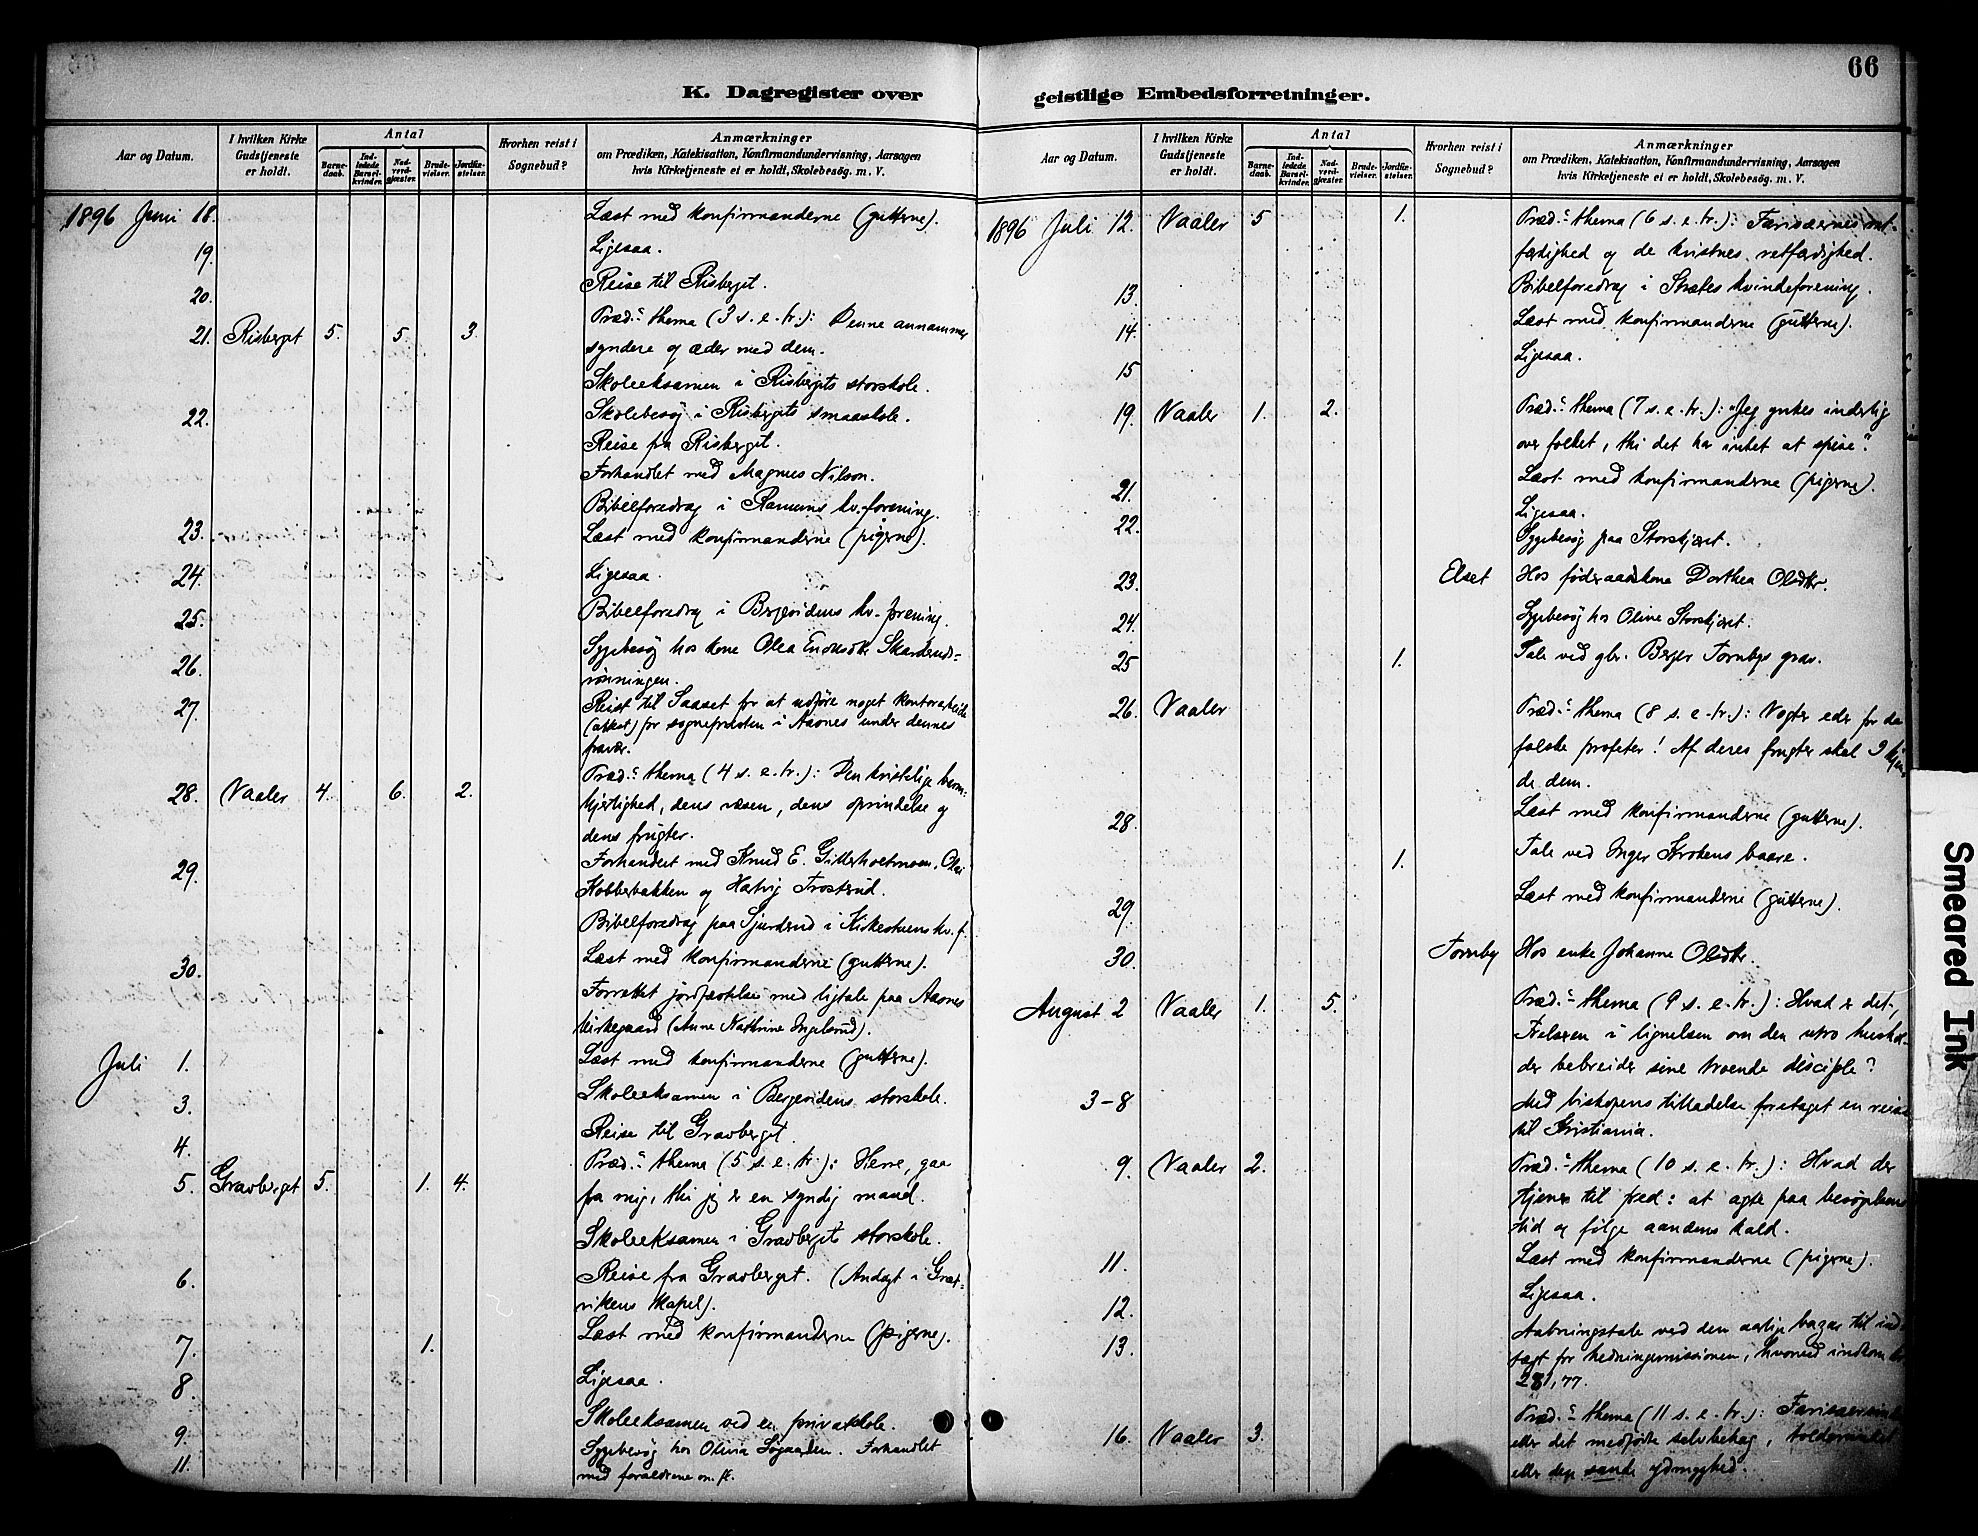 66
K. Dagregister over geistlige Embedsforretninger.
Aar og Datum.
I hvilken Kirke Gudstjeneste er holdt.
Antal
Barnedaab.
Indledede Barselkvinder.
Nadverdgjæster.
Brudevielser.
Jordfæstelser.
Hvorhen reist i Sognebud?
Anmærkninger
om Prædiken, Katekisation, Konfirmandundervisning, Aarsagen
hvis Kirketjeneste ei er holdt, Skolebesøg. m. V.
1896 Juni 18. Læst med konfirmanderne (gutterne).
19. Ligesaa.
20. Reise til Risberget.
21. Risberget 5. 5. 3. Præd.s thema (3 s. e. tr.): Denne annammer
syndere og æder med dem.
Skoleeksamen i Risbergets storskole.
22. Skolebesøg i Risbergets smaaskole.
Reise fra Risberget.
Forhandlet med Magnus Nilson.
Bibelforedrag i kv.forening.
23. Læst med konfirmanderne (pigerne).
24. Ligesaa.
25. Bibelforedrag i Bergeidens kv. forening.
26. Sygebesøg hos kone Olea
27. Reist til for at udføre noget kontorarbeide
for sognepræsten i Aasnes under dennes
fravær.
28. Vaaler 4. 6. 2. Præd.s thema (4 s. e. tr.): Den kristelige barm-
hjertighed, dens væsen, dens oprindelse og
dens frugter.
29. med Knud E.
Kobberbakken og
Bibelforedrag paa i kv. f.
30. Læst med konfirmanderne (gutterne).
Forrettet jordfæstelse med ligtale paa Aasnes
kirkegaard (Anne Kathrine
Juli 1. Læst med konfirmanderne (gutterne).
3. Skoleeksamen i Bergeidens storskole.
4. Reise til Gravberget.
5. Gravberget 5. 1. 4. Præd.s thema (5 s. e. tr.): Herre, gaa
fra mig, thi jeg er en syndig mand.
Skoleeksamen i Gravbergets storskole.
6. Reise fra Gravberget. (Andagt i
vikens kapel).
7. 1. Læst med konfirmanderne (pigerne).
8. Ligesaa.
9. Skoleeksamen ved en privatskole.
11. Sygebesøg hos Olivia Søgaarden. Forhandlet
med forældrene om
Aar og Datum.
I hvilken Kirke Gudstjeneste er holdt.
Antal
Barnedaab.
Indledede Barselkvinder.
Nadverdgjæster.
Brudevielser.
Jordfæstelser.
Hvorhen reist i Sognebud?
Anmærkninger
om Prædiken, Katekisation, Konfirmandundervisning, Aarsagen
hvis Kirketjeneste ei er holdt, Skolebesøg. m. V.
1896 Juli 12. Vaaler 5 1. Præd.s thema (6 s. e. tr.): Farisæernes ret-
færdighed og de kristnes retfærdighed.
13. Bibelforedrag i kvindeforening.
14. Læst med konfirmanderne (gutterne).
15 Ligesaa.
19. Vaaler 1. 2. Præd.s thema (7 s. e. tr.): "Jeg ynkes inderlig
over folket, thi det har intet at spise".
21. Læst med konfirmanderne (pigerne).
22. Ligesaa.
Sygebesøg paa Storskjæret.
23. Elset Hos føderaadskone Dorthea Olsdtr.
24. Sygebesøg hos Oline Storskjæret.
25 1. Tale ved gbr. Berger Tornbys grav.
26. Vaaler Præd.s thema (8 s. e. tr.): Vogter eder for de
falske profeter! Af deres frugter skal I kjen
de dem.
28. Læst med konfirmanderne (gutterne).
1. Tale ved Inger Krokens baare.
29. Læst med konfirmanderne (gutterne).
30. Tornby Hos enke Johanne Olsdtr.
August 2 Vaaler 1. 5. Præd.s thema (9 s. e. tr.): Hvad er det,
Frelseren i lignelsen om den utro hushol-
der bebreider sine troende disciple?
3-8 Med biskopens tilladelse foretaget en reise
til Kristiania.
9. Vaaler 2. Præd.s thema (10 s. e. tr.): Hvad der
tjener til fred: at agte paa besøgelsens
tid og følge aandens kald.
11. Læst med konfirmanderne (pigerne).
12. Ligesaa.
13. Aabningstale ved den aarlige bazar til ind-
tægt for hedningemissionen, hvorved indkom kr
281,77.
16. Vaaler 3. Præd.s thema (11 s. e. tr.):
eller det medfødte selvbehag,
eller den sande ydmyghed.
Smeared Ink